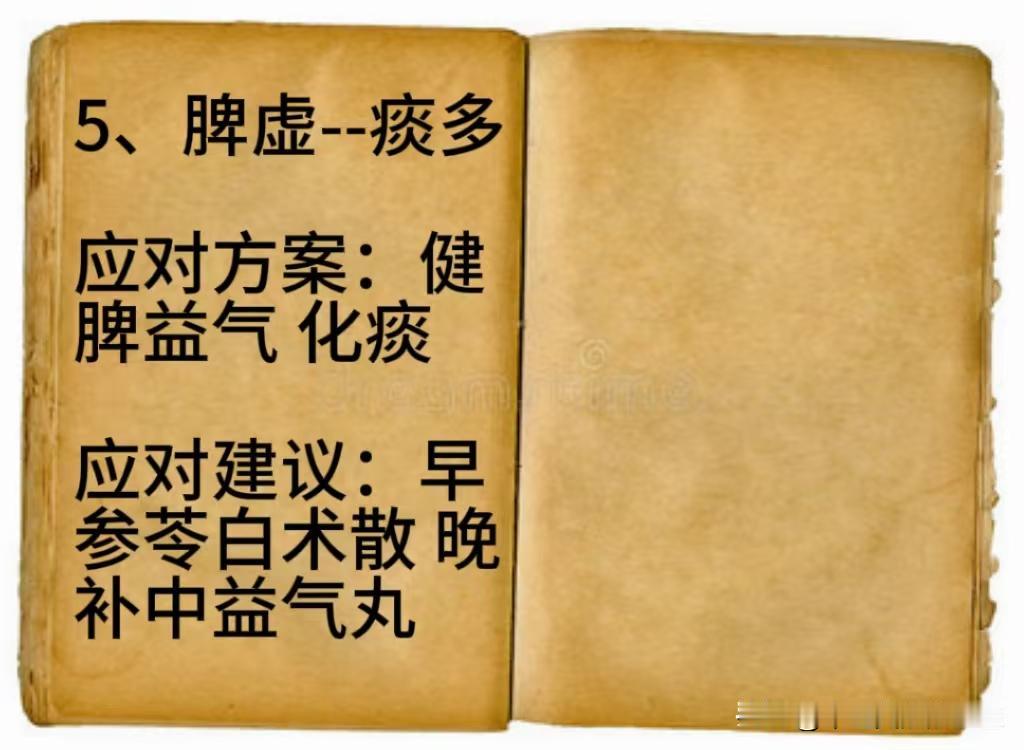 5、脾虚--痰多
应对方案：健
脾益气 化痰
应对建议：早
参苓白术散 晚
补中益气丸
dreamstime